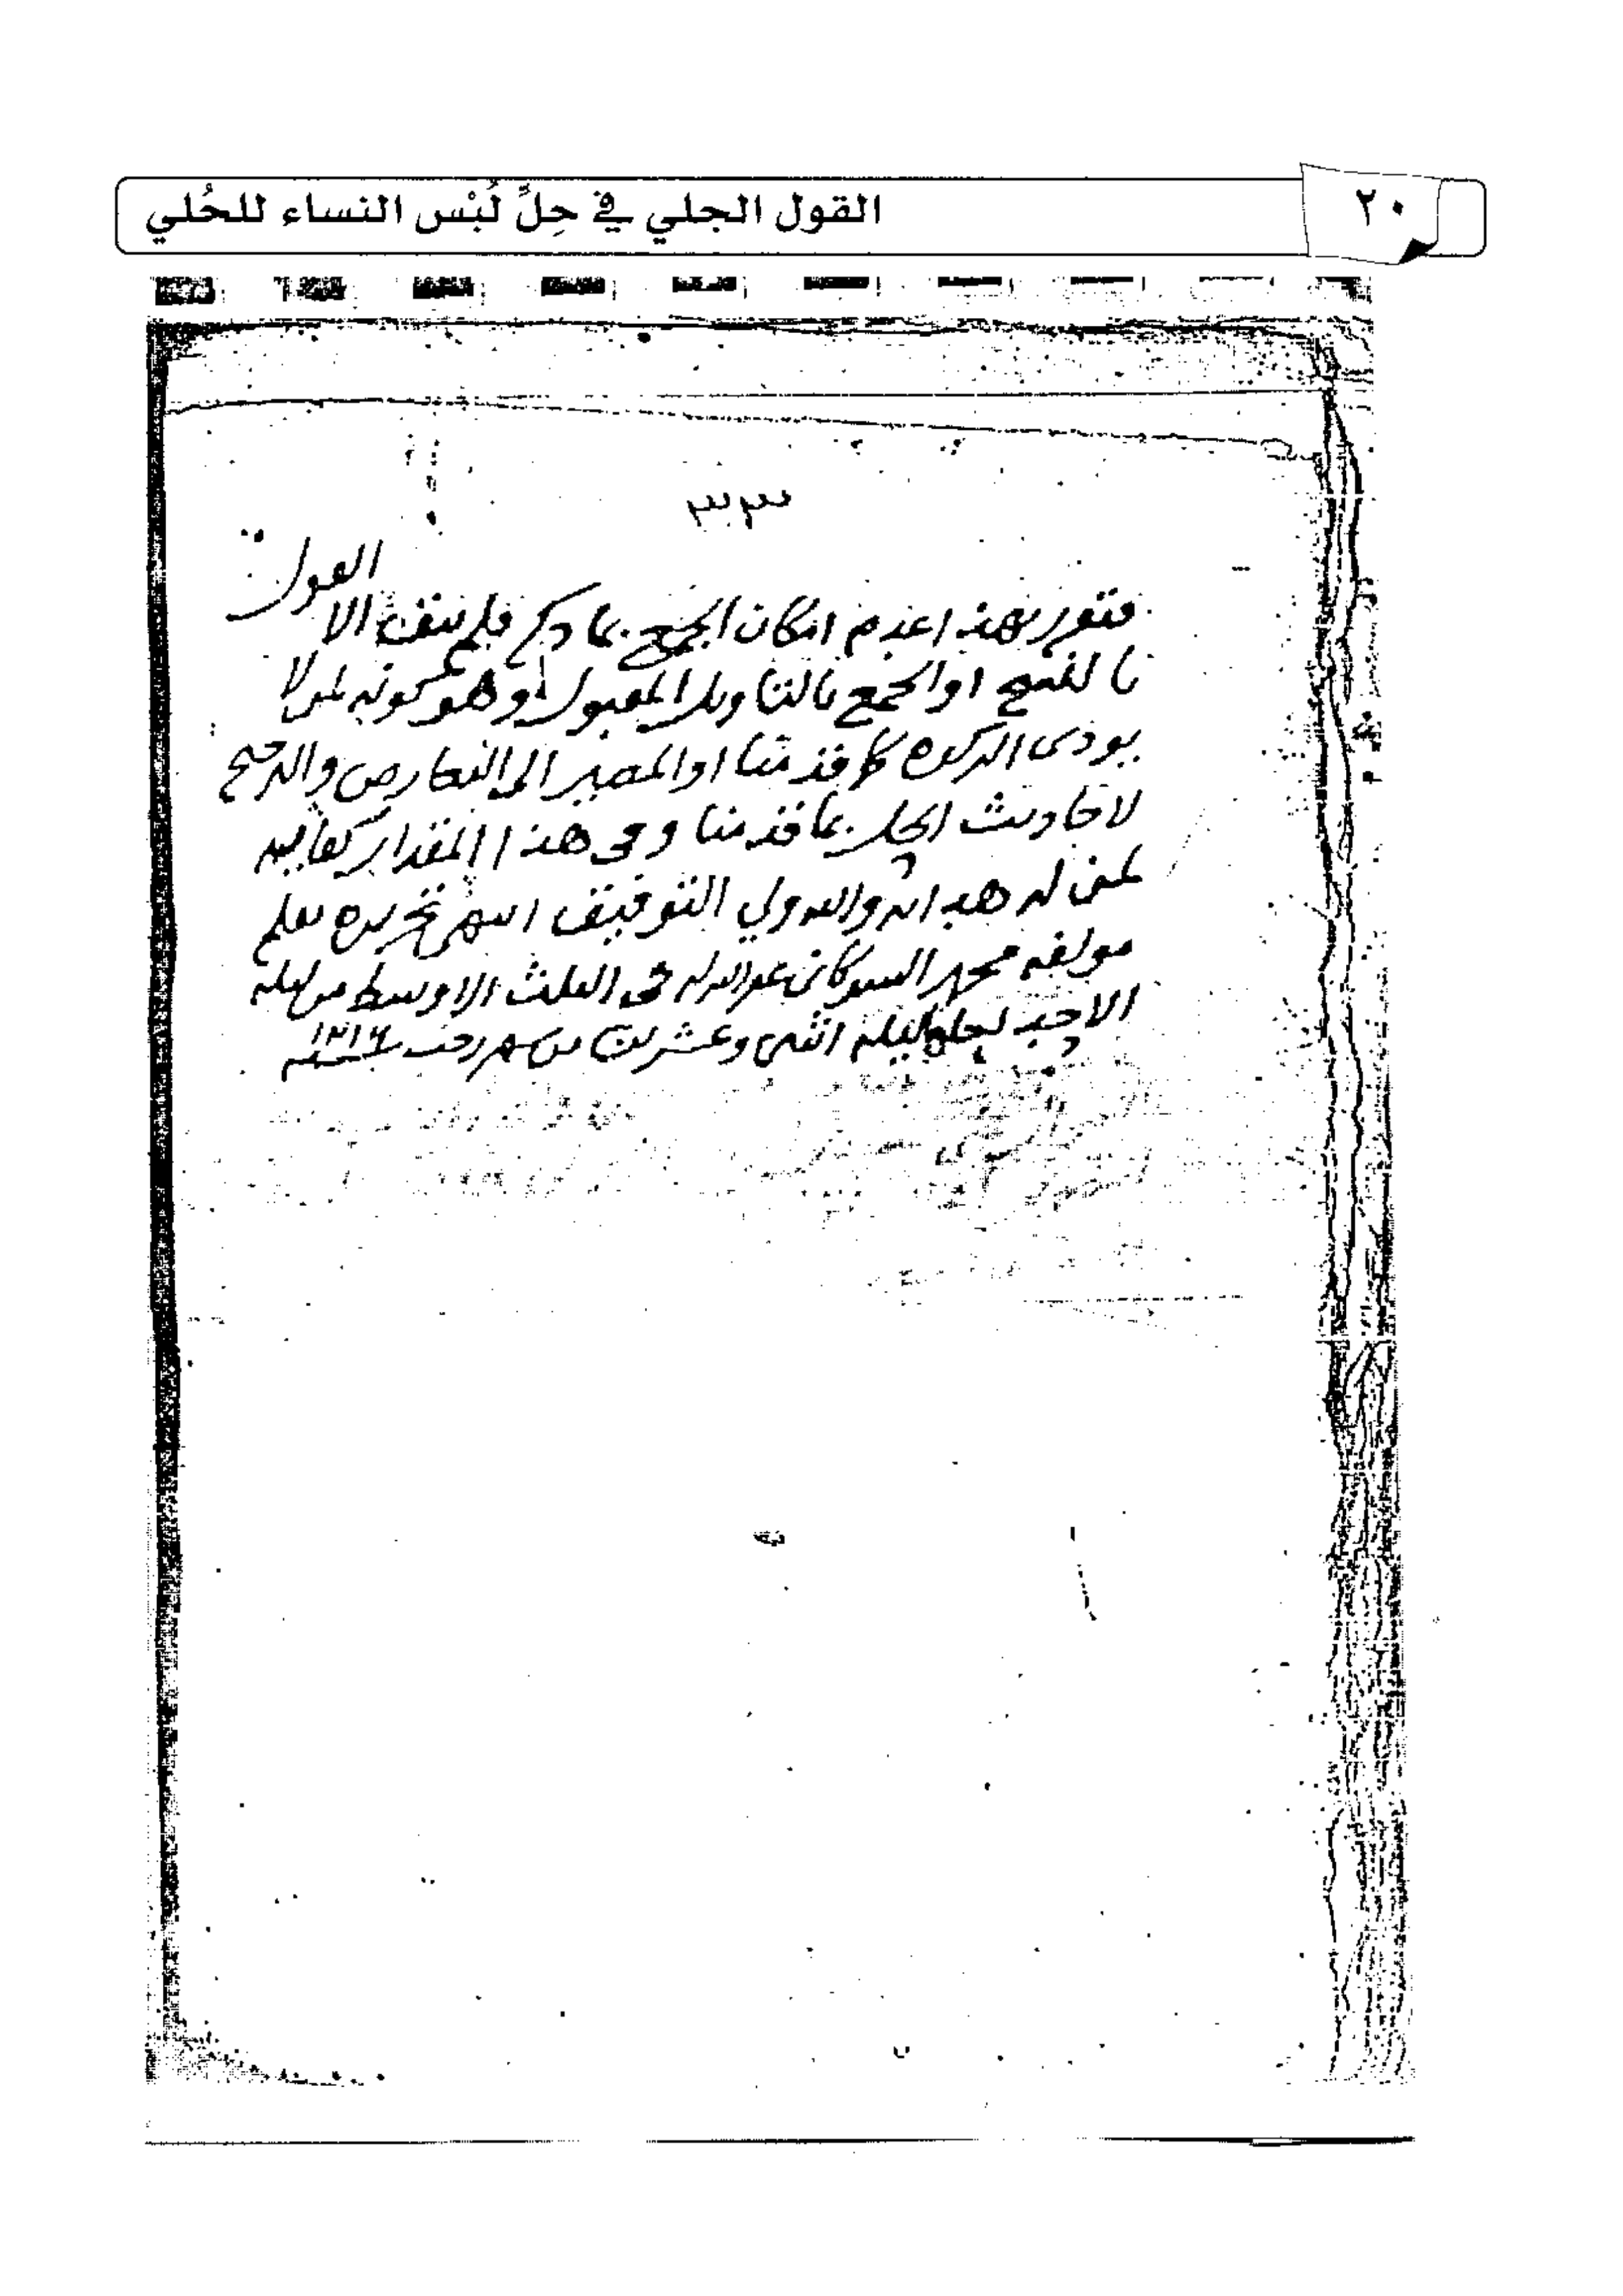 ٢٠
القول الجلي في حِلِّ لُبْس النساء للحُلي
٣٣
القول
فتقرر بهذا عدم امكان الجمع بما ذكر فلم يبق الا
بالنسخ او الجمع بالتاويل المقبول وهو كونه لمن لا
يودى الزكوة كما قدمنا او المصير الى التعارض والترجيح
لاحاديث الحل بما قدمنا وفى هذا المقدار كفايه
لمن له هدايه والله ولي التوفيق انتهى تحريره بقلم
مولفه محمد الشوكانى غفر الله له فى الثلث الاوسط من ليله
الاحد ليلة اثنى وعشرين من شهر رجب سنة ١٢١٦